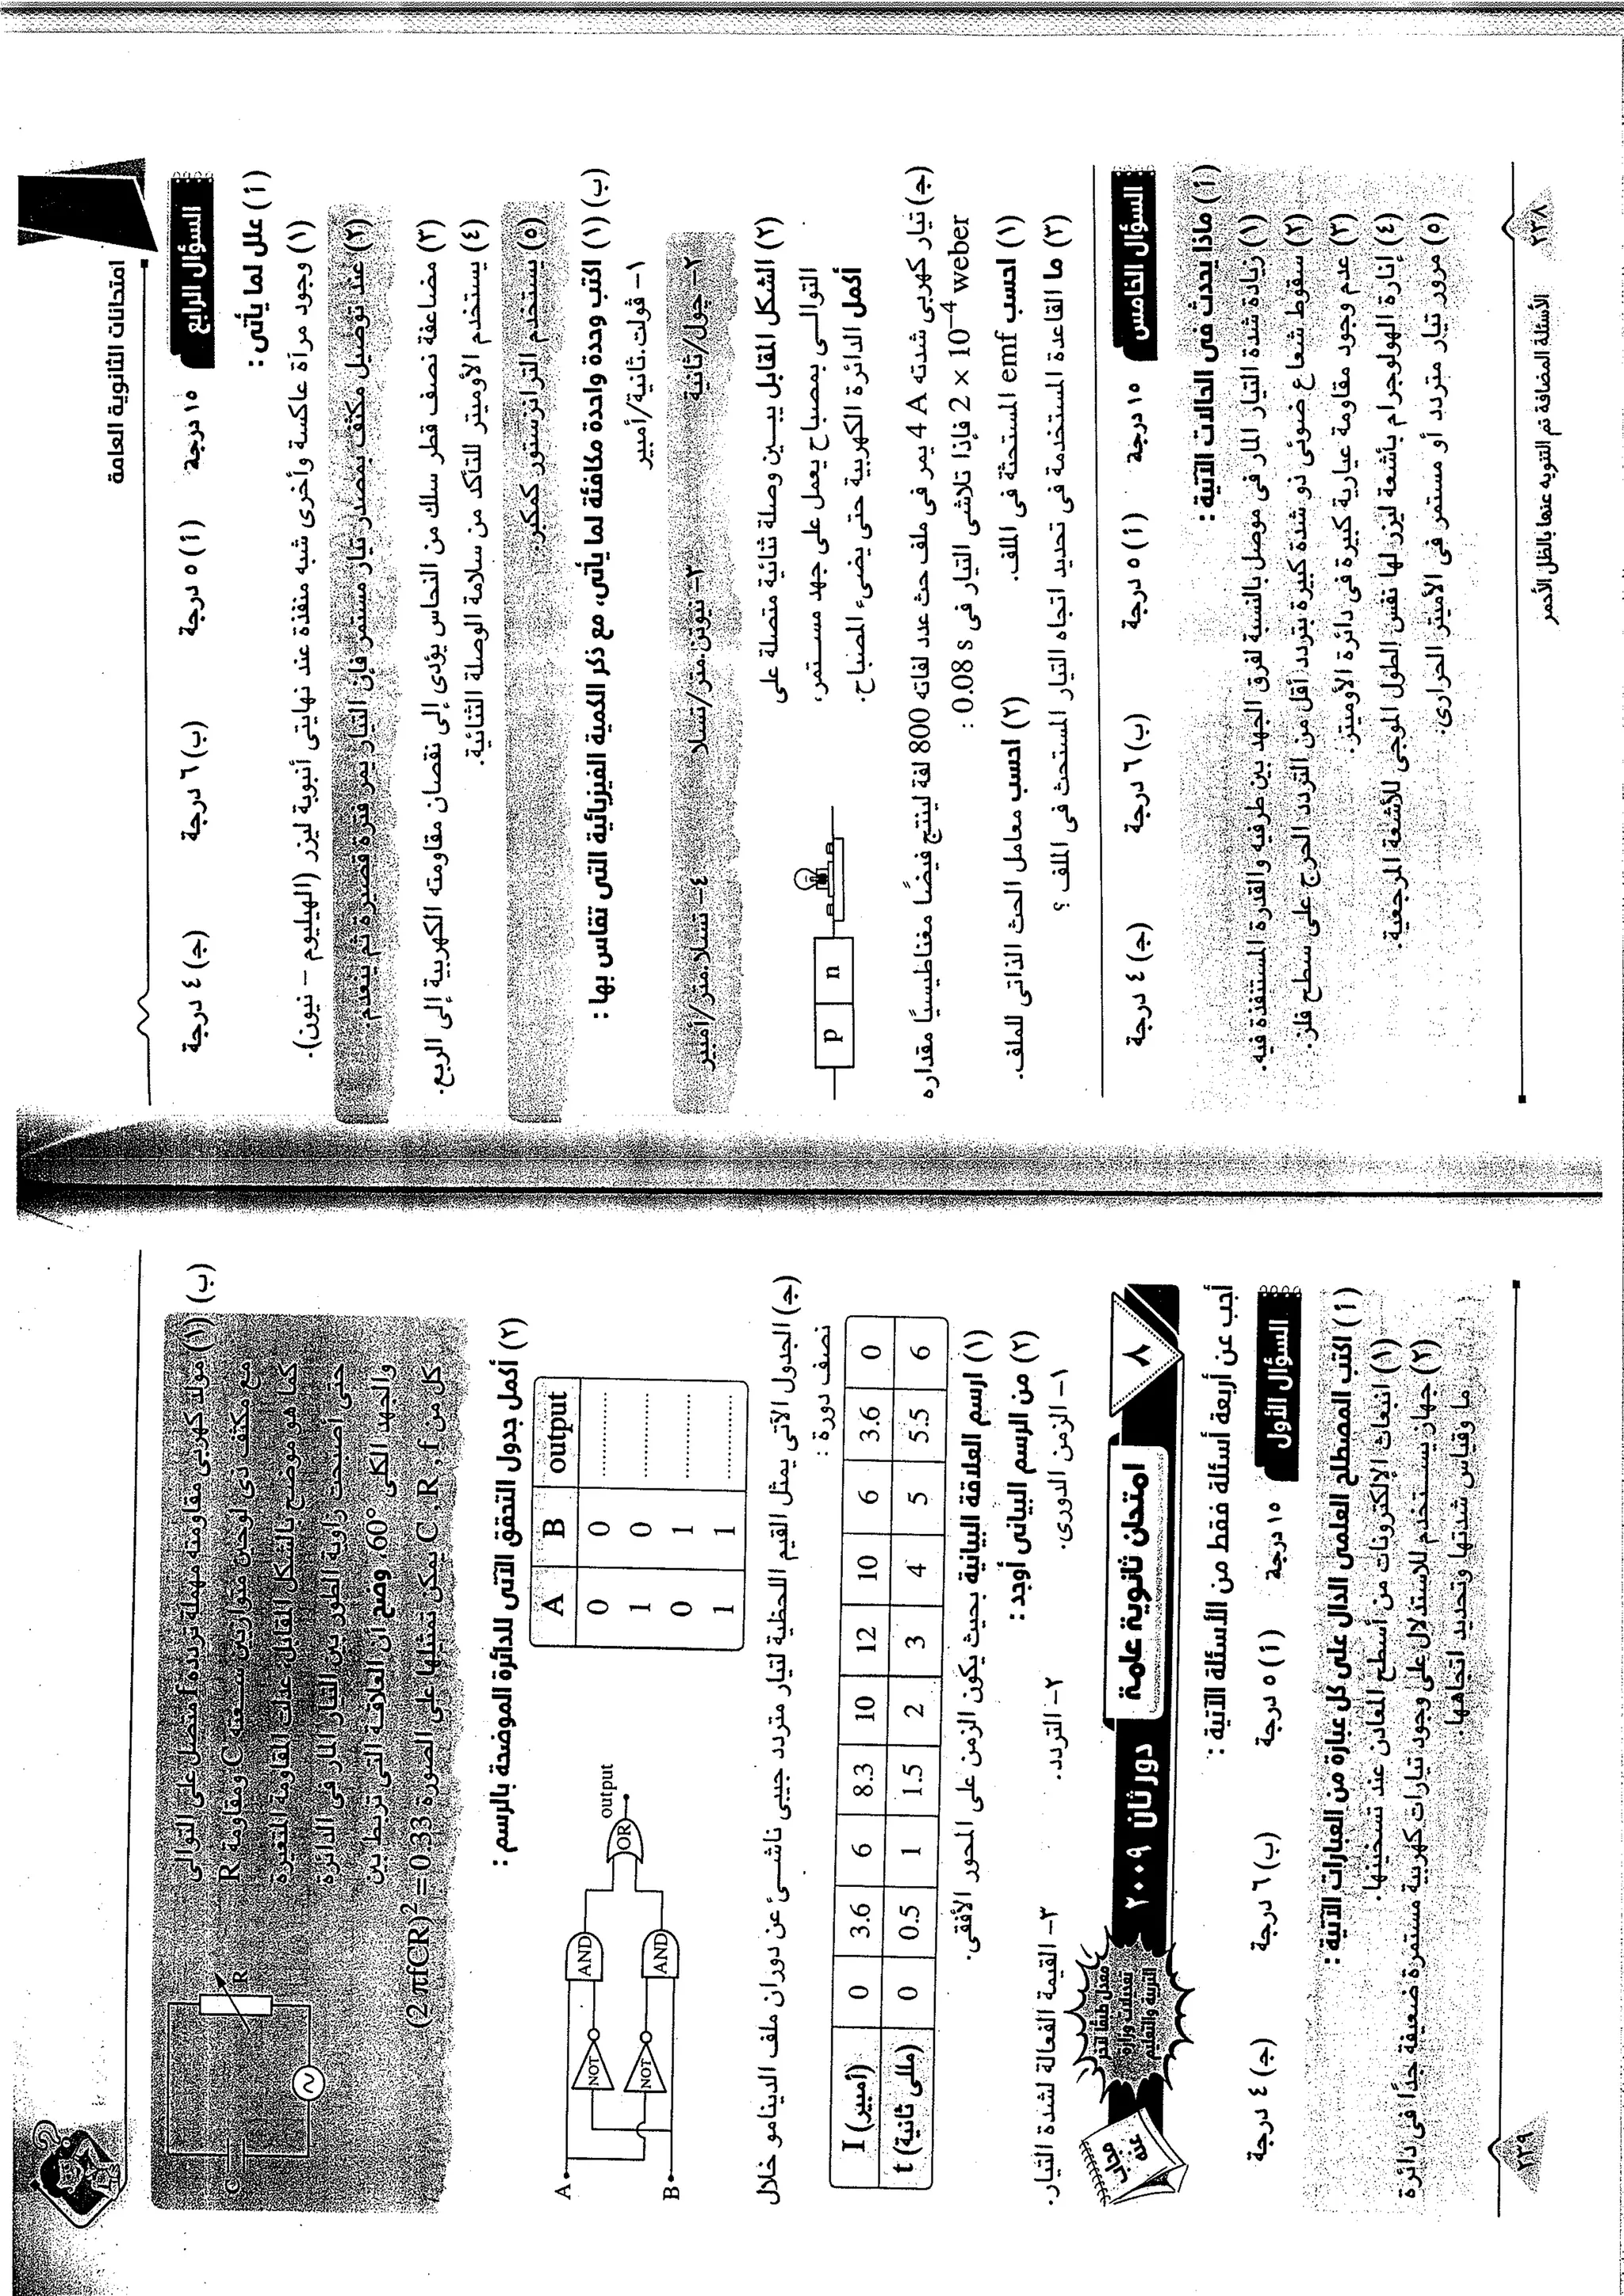 امتحانات الثانوية العامة
السؤال الرابع ١٥ درجة (أ) ٥ درجة (ب) ٦ درجة (جـ) ٤ درجة
(أ) علل لما يأتى :
(١) وجود مرآة عاكسة وأخرى شبه منفذة عند نهايتى أنبوبة ليزر (الهيليوم – نيون).
(٢) عند توصيل مكثف بمصدر تيار مستمر فإن التيار يمر فترة قصيرة ثم ينعدم.
(٣) مضاعفة نصف قطر سلك من النحاس يؤدى إلى نقصان مقاومته الكهربية إلى الربع.
(٤) يستخدم الأوميتر للتأكد من سلامة الوصلة الثنائية.
(٥) يستخدم الترانزستور كمكبر.
(ب) (١) اكتب وحدة واحدة مكافئة لما يأتى، مع ذكر الكمية الفيزيائية التى تقاس بها :
١– ڤولت.ثانية/أمبير
٢– چول/ثانية ٣– نيوتن.متر/تسلا ٤– تسلا.متر/أمبير
(٢) الشكل المقابل يبين وصلة ثنائية متصلة على
التوالى بمصباح يعمل على جهد مستمر،
أكمل الدائرة الكهربية حتى يضىء المصباح.
p n
(جـ) تيار كهربى شدته 4 A يمر فى ملف حث عدد لفاته 800 لفة لينتج فيضًا مغناطيسيًا مقداره
2 × 10⁻⁴ weber فإذا تلاشى التيار فى 0.08 s :
(١) احسب emf المستحثة فى الملف. (٢) احسب معامل الحث الذاتى للملف.
(٣) ما القاعدة المستخدمة فى تحديد اتجاه التيار المستحث فى الملف ؟
السؤال الخامس ١٥ درجة (أ) ٥ درجة (ب) ٦ درجة (جـ) ٤ درجة
(أ) ماذا يحدث فى الحالات الآتية :
(١) زيادة شدة التيار المار فى موصل بالنسبة لفرق الجهد بين طرفيه والقدرة المستنفذة فيه.
(٢) سقوط شعاع ضوئى ذو شدة كبيرة بتردد أقل من التردد الحرج على سطح فلز.
(٣) عدم وجود مقاومة عيارية كبيرة فى دائرة الأوميتر.
(٤) إنارة الهولوجرام بأشعة ليزر لها نفس الطول الموجى للأشعة المرجعية.
(٥) مرور تيار متردد أو مستمر فى الأميتر الحرارى.
٢٣٨ الأسئلة المضافة تم التنويه عنها بالظل الأحمر
(ب) (١) مولد كهربى مقاومته مهملة تردده f متصل على التوالى
مع مكثف ذى لوحين متوازيين سعته C ومقاومة R
كما هو موضح بالشكل المقابل، عدلت المقاومة المتغيرة
حتى أصبحت زاوية الطور بين التيار المار فى الدائرة
والجهد الكلى 60°، وضح أن العلاقة التى تربط بين
كل من C , R , f يمكن تمثيلها على الصورة (2 πfCR)² = 0.33
C R
(٢) أكمل جدول التحقق الآتى للدائرة الموضحة بالرسم :
A B output
0 0 ............
1 0 ............
0 1 ............
1 1 ............
A B NOT NOT AND AND OR output
(جـ) الجدول الآتى يمثل القيم اللحظية لتيار متردد جيبى ناشئ عن دوران ملف الدينامو خلال
نصف دورة :
I (أمبير) 0 3.6 6 8.3 10 12 10 6 3.6 0
t (مللى ثانية) 0 0.5 1 1.5 2 3 4 5 5.5 6
(١) ارسم العلاقة البيانية بحيث يكون الزمن على المحور الأفقى.
(٢) من الرسم البيانى أوجد :
١– الزمن الدورى. ٢– التردد. ٣– القيمة الفعالة لشدة التيار.
٨ امتحان ثانوية عامة دور ثان ٢٠٠٩
معدل طبقًا لآخر
تعديلات وزارة
التربية والتعليم
مجاب
عنه
أجب عن أربعة أسئلة فقط من الأسئلة الآتية :
السؤال الأول ١٥ درجة (أ) ٥ درجة (ب) ٦ درجة (جـ) ٤ درجة
(أ) اكتب المصطلح العلمى الدال على كل عبارة من العبارات الآتية :
(١) انبعاث الإلكترونات من أسطح المعادن عند تسخينها.
(٢) جهاز يستخدم للاستدلال على وجود تيارات كهربية مستمرة ضعيفة جدًا فى دائرة
ما وقياس شدتها وتحديد اتجاهها.
٢٣٩